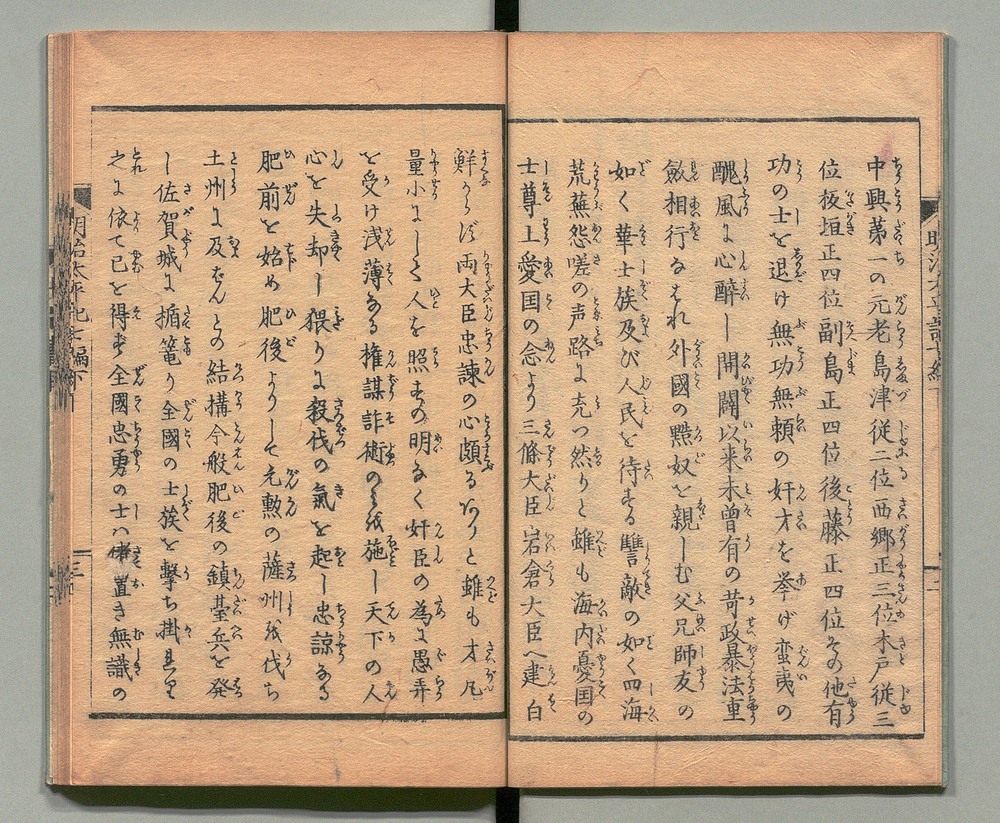 中興第一の元老島津従二位西郷正三位木戸従三
位板垣正四位副島正四位後藤正四位その他有
功の士を退け無功無頼の奸才を挙げ蛮夷の
醜風に心醉し開闢以来未曽有の苛政暴法重
斂相行るはれ外國の黠奴を親しむ父兄師友の
如く華士族及び人民を待する讐敵の如く四海
荒蕪怨嗟の声路に充つ然りと雖も海内憂国の
士尊上愛国の念より三條大臣岩倉大臣へ建白
鮮からず両大臣忠諫の心頗るありと雖も才凡
量小にして人を照すの明なく奸臣の為に愚弄
を受け浅薄なる権謀詐術のミを施し天下の人
心を失却し猥りに殺伐の氣を起し忠諒なる
肥前を始め肥後よりして元勲の薩州を伐ち
土州に及ばんとの結構今般肥後の鎮臺兵を発
し佐賀城に楯篭り全國の士族を撃ち掛具里
之に依て已を得ず全國忠勇の士ハ置き無識の
明治太平記七編下
三